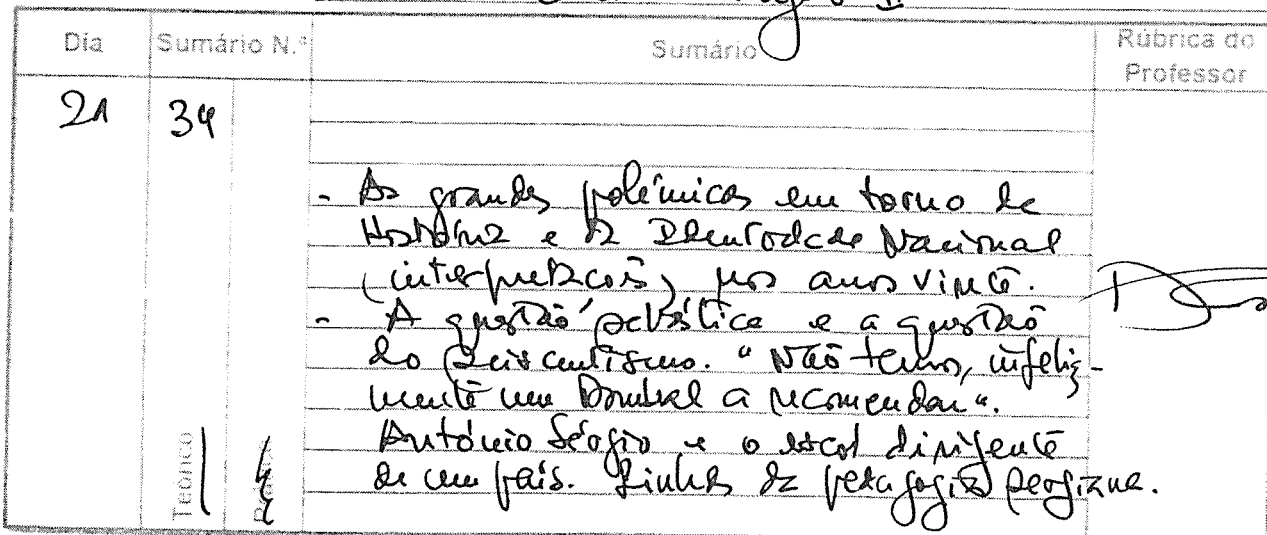 Dia Sumário N.º Sumário Rúbrica do Professor
21 34
- As grandes polémicas em torno da
História e da Identidade Nacional
(interpretações) nos anos vinte.
- A questão sebástica e a questão
do seiscentismo. "Não temos, infeliz-
mente um a recomendar".
António Sérgio e o escol dirigente
de um país. Linhas da pedagogia sergiana.
Teórico